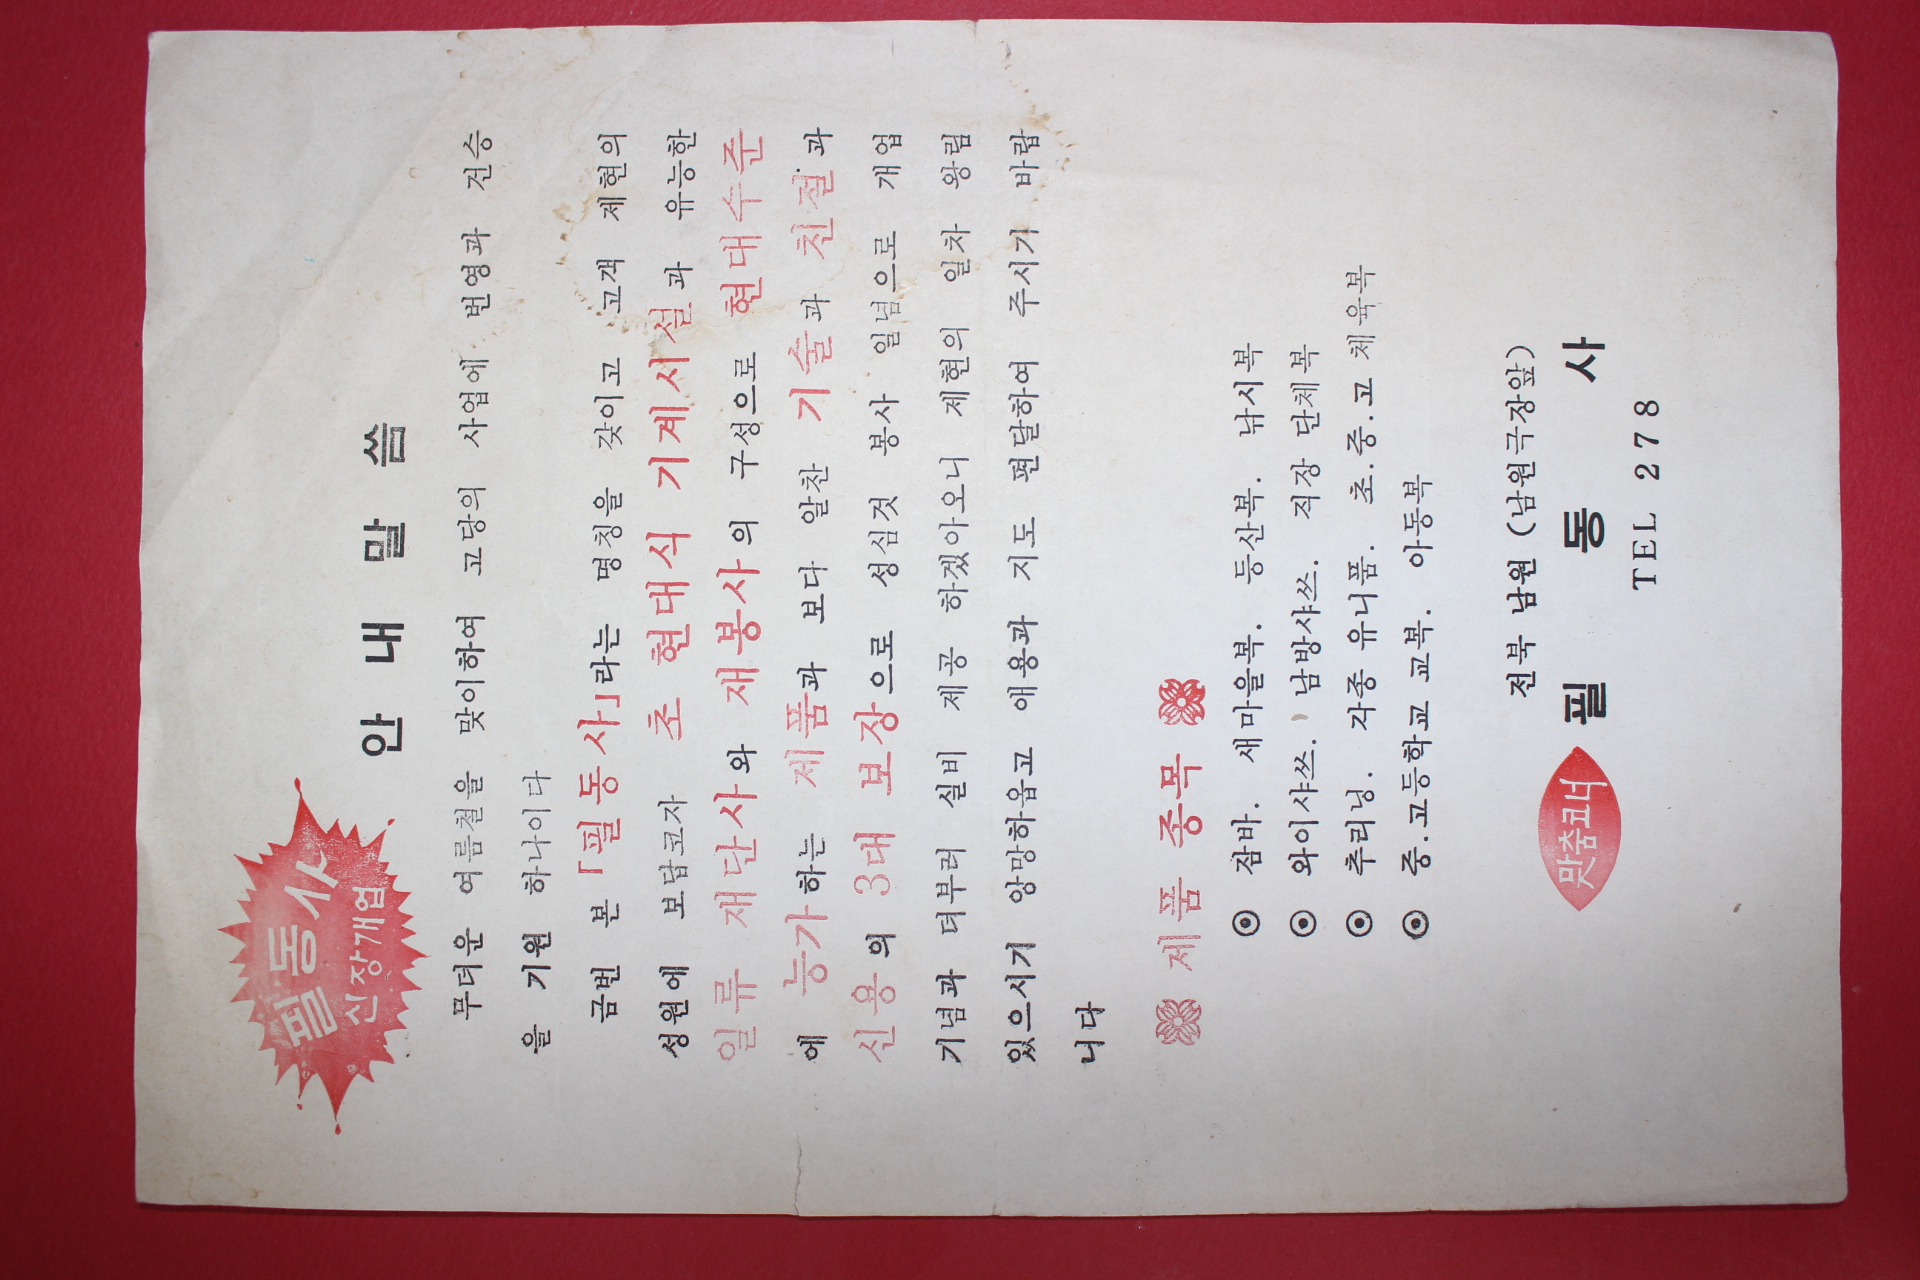 필동사
신장개업
안내말씀
무더운 여름철을 맞이하여 고당의 사업에 번영과 건승
을 기원 하나이다
금번 본 「필동사」라는 명칭을 갖이고 고객 제현의
성원에 보답코자 초 현대식 기계시설과 유능한
일류 재단사와 재봉사의 구성으로 현대수준
에 능가하는 제품과 보다 알찬 기술과 친절과
신용의 3대 보장으로 성심것 봉사 일념으로 개업
기념과 더부러 실비 제공 하겠아오니 제현의 일차 왕림
있으시기 앙망하옵고 애용과 지도 편달하여 주시기 바랍
니다
제품 종목
◉ 잠바. 새마을복. 등산복. 낚시복
◉ 와이샤쓰. 남방샤쓰. 직장 단체복
◉ 추리닝. 각종 유니품. 초.중.고 체육복
◉ 중.고등학교 교복. 아동복
전북 남원 (남원극장앞)
맞춤코너 필동사
TEL 278